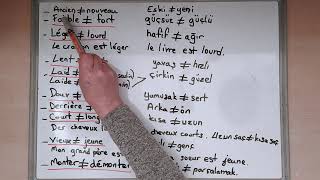 Ancien ≠ nouveau Eski ≠ yeni
Faible ≠ fort güçsüz ≠ güçlü
Léger ≠ lourd hafif ≠ ağır
Le crayon est léger le livre est lourd.
Lent yavaş ≠ hızlı
Laid
Laide çirkin ≠ güzel
Doux yumuşak ≠ sert
Derrière Arka ≠ ön
Court ≠ long kısa ≠ uzun
Des cheveux courts. Uzun saç ≠ kısa saç
Vieux ≠ jeune ≠ genç
Mon grand père est soeur est jeune.
Monter ≠ démonter ≠ parçalamak.